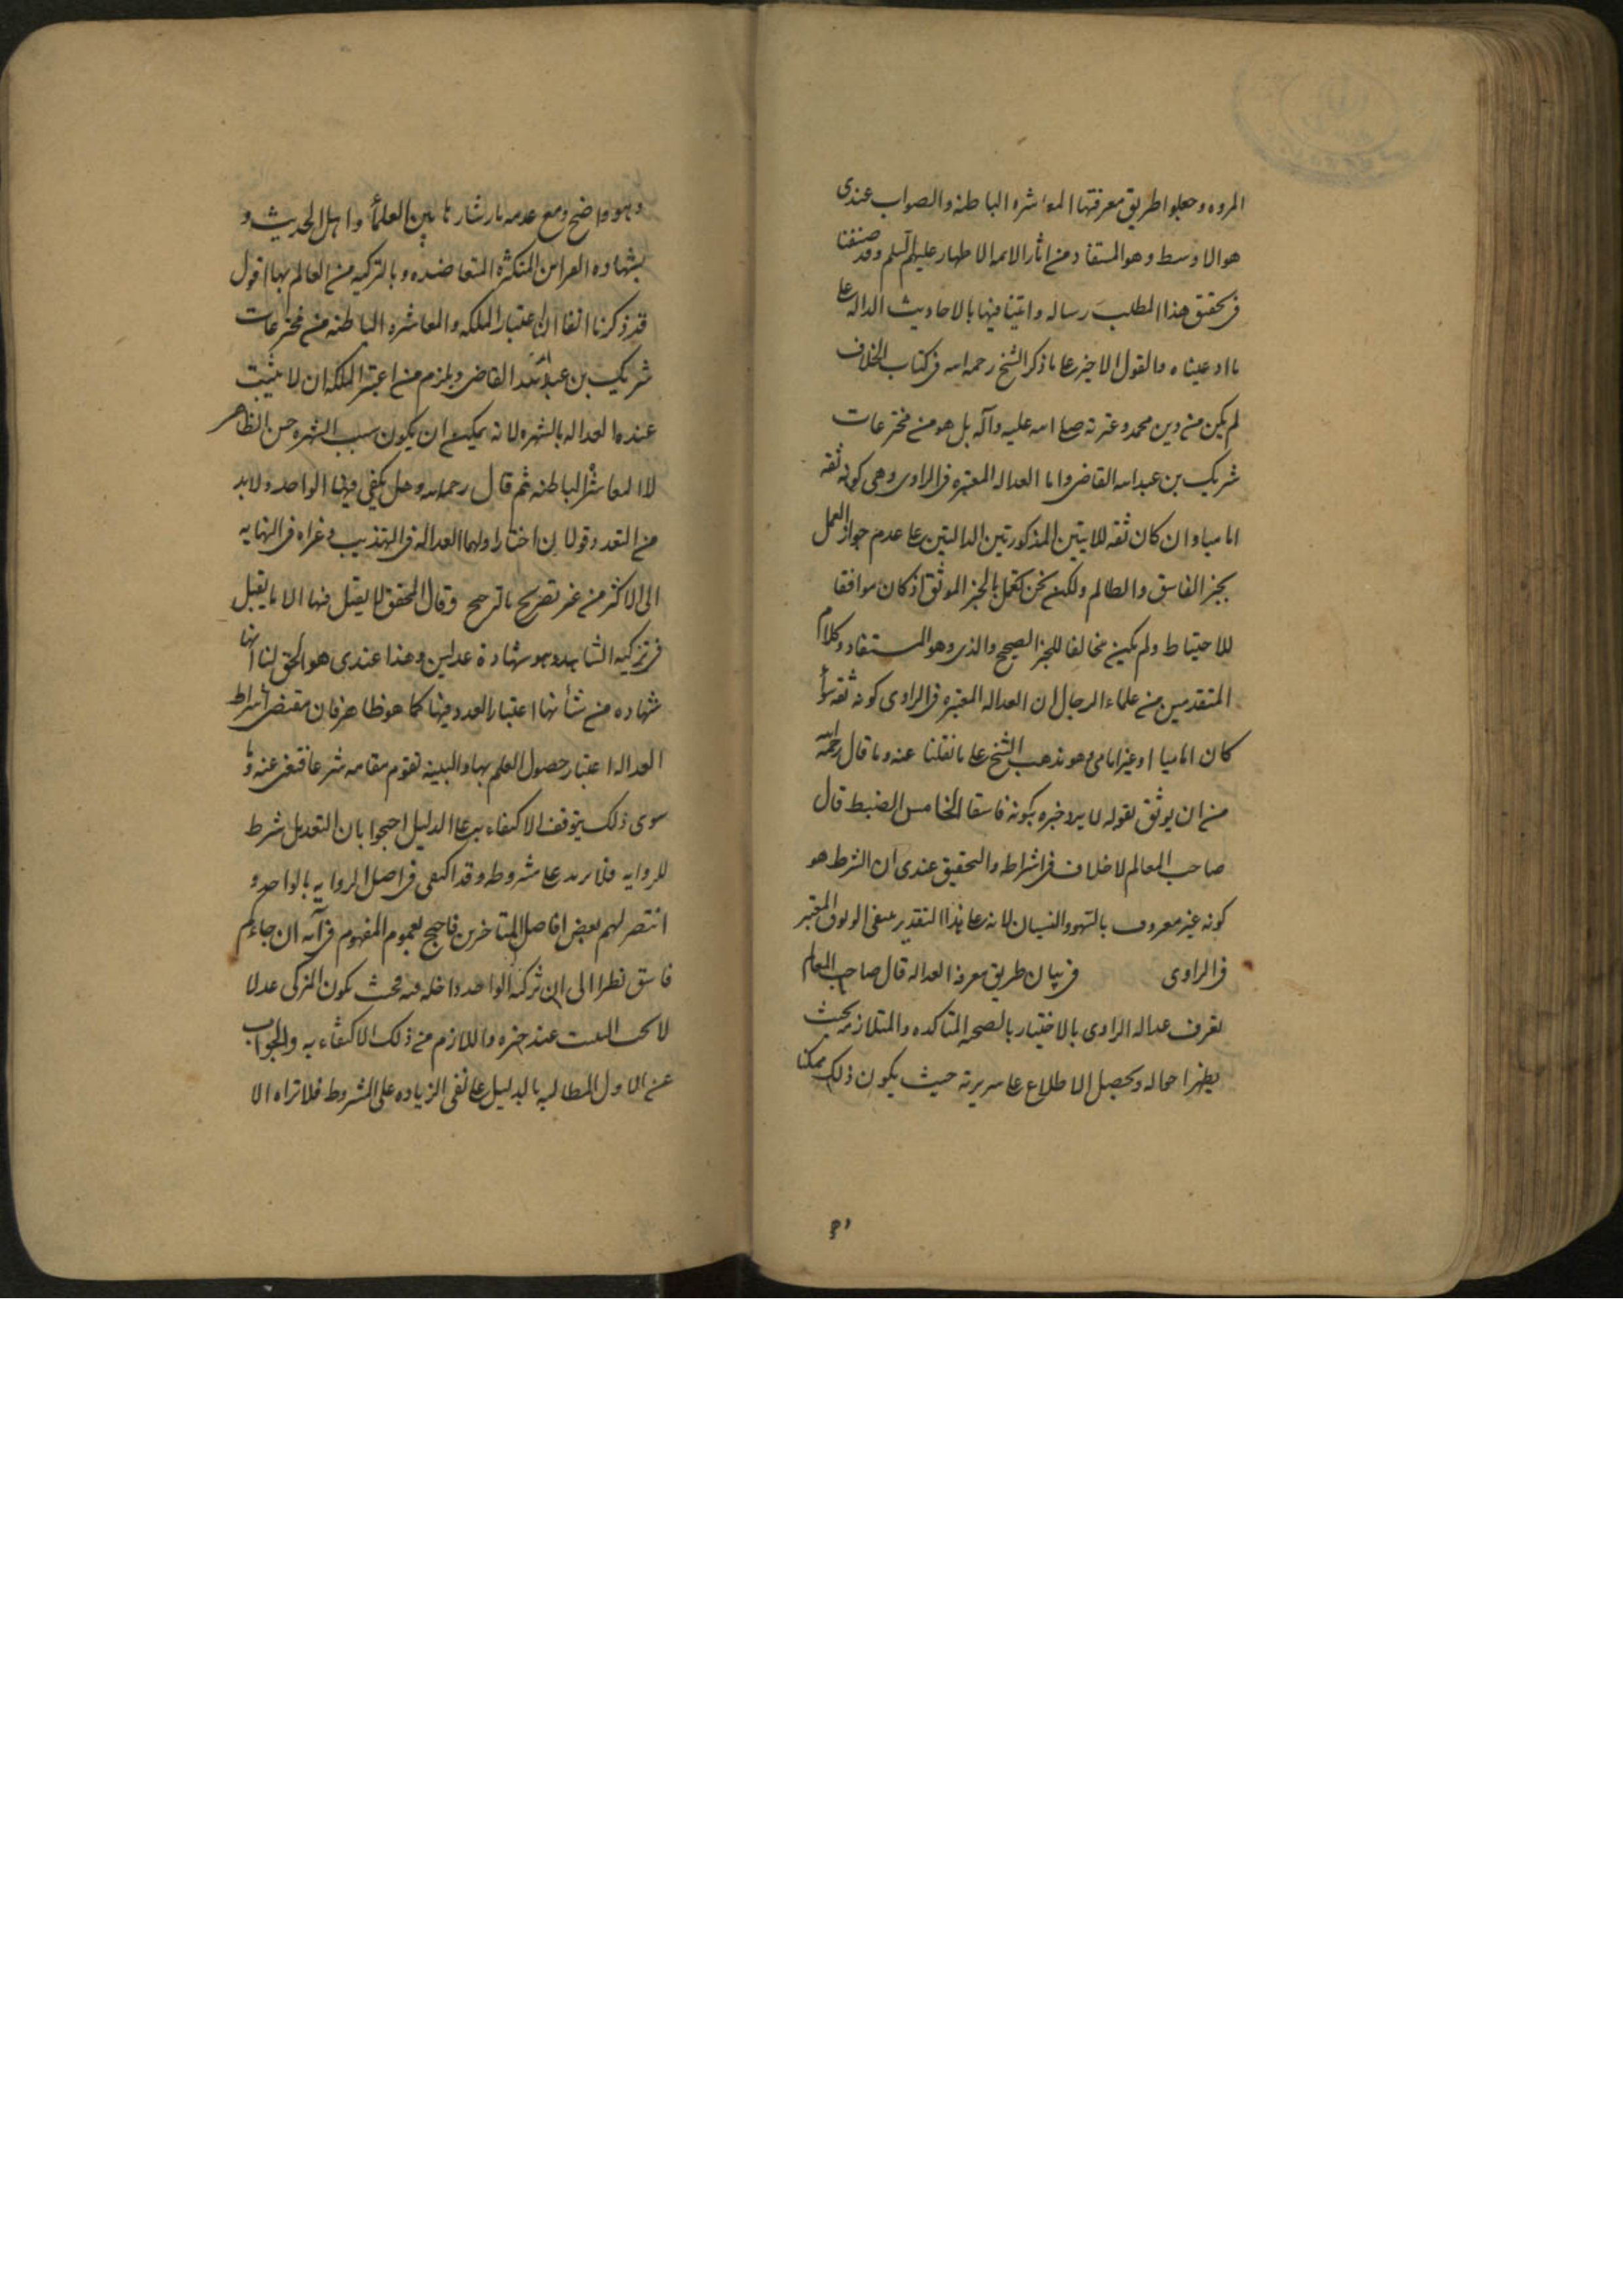 المروه وجعلوا طريق معرفتها المعاشره الباطنه والصواب عندى
هو الاوسط وهو المستفاد من اثار الائمه الاطهار عليهم السلم وقد صنفنا
فى تحقيق هذا المطلب رساله واتينا فيها بالاحاديث الداله على
ما ادعيناه والقول الاخير على ما ذكر الشيخ رحمه اسه فى كتاب الخلاف
لم يكن من دين محمد وعترته صلى اسه عليه وآله بل هو من مخترعات
شريك بن عبد اسه القاضى واما العداله المعتبره فى الراوى وهى كونه ثقه
اماميا وان كان ثقه للايتين المذكورتين الدالتين على عدم جواز العمل
بخبر الفاسق والظالم ولكن نحن نعمل بالخبر الموثق اذ كان موافقا
للاحتياط ولم يكن مخالفا للخبر الصحيح والذى وهو المستفاد وكلام
المتقدمين من علماء الرجال ان العداله المعتبره فى الراوى كونه ثقه سوأ
كان اماميا او غير امامى وهو مذهب الشيخ على ما نقلنا عنه وما قال رحمه الله
من ان يوثق لقوله لا يرد خبره بكونه فاسقا الخامس الضبط قال
صاحب المعالم لا خلاف فى اشراطه والتحقيق عندى ان الشرط هو
كونه غير معروف بالسهو والنسيان لانه على هذا التقدير ينبغى الوثوق المعتبر
فى الراوى فى بيان طريق معرفه العداله قال صاحب المعالم
تعرف عداله الراوى بالاختبار بالصحبه المتاكده والمتلازمه بحيث
يظهر احواله ويحصل الاطلاع على سريرته حيث يكون ذلك ممكنا
وهو
وهو واضح ومع عدمه بارشتارها بين العلمأ واهل الحديث و
بشهاده القراين المتكثره المتعاضده وبالتزكيه من العالم بها اقول
قد ذكرنا انفا ان اعتبار الملكه والمعاشره الباطنه من مخترعات
شريك بن عبد الله القاضى ويلزم من اعتبر الملكه ان لا يثبت
عنده العداله بالشهره لانه يمكن ان يكون سبب الشهره حسن الظاهر
لا المعاشره الباطنه ثم قال رحمه اسه وهل يكفى فيها الواحد ولابد
من التعدد قولان اختار اولهما العداله فى التهذيب وعزاه فى النهايه
الى الاكثر من غير تصريح بالترجيح وقال المحقق لا يقبل فيها الا ما يقبل
فى تزكيه الشاهد وهو شهادة عدلين وهذا عندى هو الحق لنا انها
شهاده من شأنها اعتبار العدد فيها كما هو ظاهر فان مقتضى اشراط
العداله اعتبار حصول العلم بها والبينه تقوم مقامه شرعا فتغنى عنه وما
سوى ذلك يتوقف الاكتفاء به على الدليل احتجوا بان التعديل شرط
للروايه فلا يزيد على شروطه وقد اكتفى فى اصل الروايه بالواحد و
انتصر لهم بعض افاضل المتاخرين فاحتج بعموم المفهوم فى آيه ان جاءكم
فاسق نظرا الى ان تزكيه الواحد داخله فيه بحيث يكون المزكى عدلا
لا يجب التثبت عند خبره واللازم من ذلك الاكتفاء به والجواب
عن الاول المطالبه بالدليل على نفى الزياده على المشروط فلا تراه الا